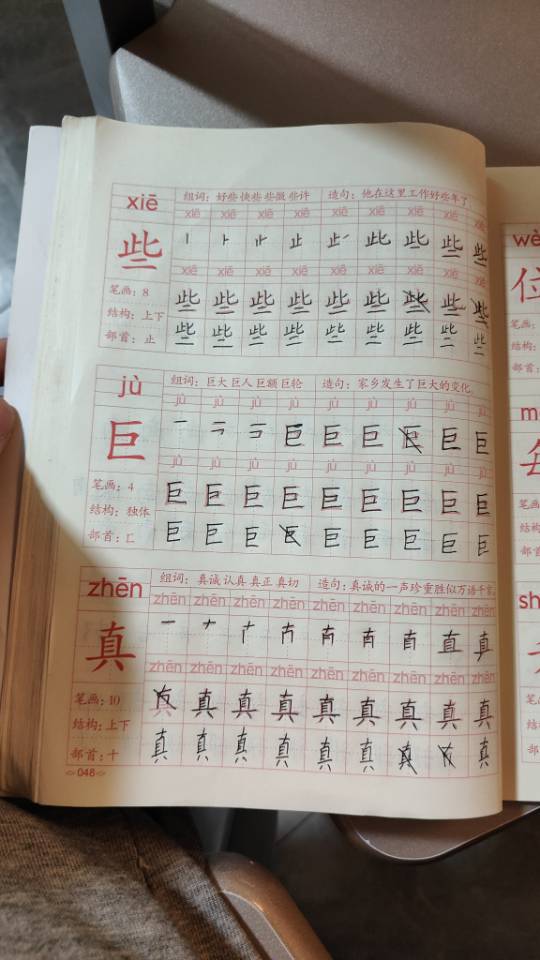 xiē 组词：好些 快些 些微 些许 造句：他在这里工作好些年了
xiē xiē xiē xiē xiē xiē xiē xiē xiē
些 丨 ⺊ 止 止 此 此 些 些
xiē xiē xiē xiē xiē xiē xiē xiē
笔画：8 些 些 些 些 些 些 些 些 些
结构：上下
部首：止 些 些 些 些 些 些 些 些 些
jù 组词：巨大 巨人 巨额 巨轮 造句：家乡发生了巨大的变化。
jù jù jù jù jù jù jù jù
巨 一 巨 巨 巨 巨 巨 巨
jù jù jù jù jù jù jù jù
笔画：4 巨 巨 巨 巨 巨 巨 巨 巨 巨
结构：独体
部首：匚 巨 巨 巨 巨 巨 巨 巨 巨 巨
zhēn 组词：真诚 认真 真正 真切 造句：真诚的一声珍重胜似万语千言。
zhēn zhēn zhēn zhēn zhēn zhēn zhēn zhēn zhēn
真 一 十 直 真
zhēn zhēn zhēn zhēn zhēn zhēn zhēn zhēn zhēn
笔画：10 真 真 真 真 真 真 真 真
结构：上下
部首：十 真 真 真 真 真 真 真 真
048
wè
位
笔画：
结构：
部首：
mě
每
笔画
结构
部首：
sh
笔画
结构
部首